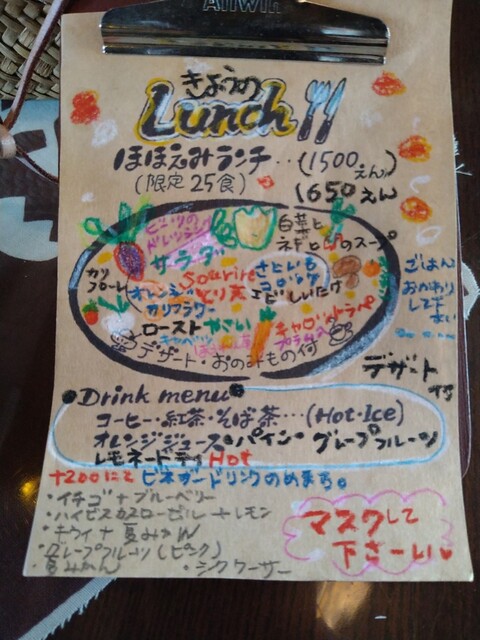 きょうの
Lunch
ほほえみランチ‥(1500えん)
(限定25食)
1650えん
ビーツの
ドレッシング
サラダ
白菜と
ネギと のスープ
カリ
フローレ
Sourire
とり天
さといも
コロッケ
エビしいたけ
オレンジ
カリフラワー
ローストやさい
キャベツ
キャロットラペ
デザート・おのみもの付
ごはん
おかわり
して下
さい
デザート
付
Drink menu
コーヒー・紅茶・そば茶…(Hot・Ice)
オレンジジュース・パイン・グレープフルーツ
レモネードティ Hot
+200にてビネガードリンクのめます。
・イチゴ+ブルーベリー
・ハイビスカスローゼル+レモン
・キウイ+夏みかん
・グレープフルーツ(ピンク)
・夏みかん ・シークワーサー
マスクして
下さーい